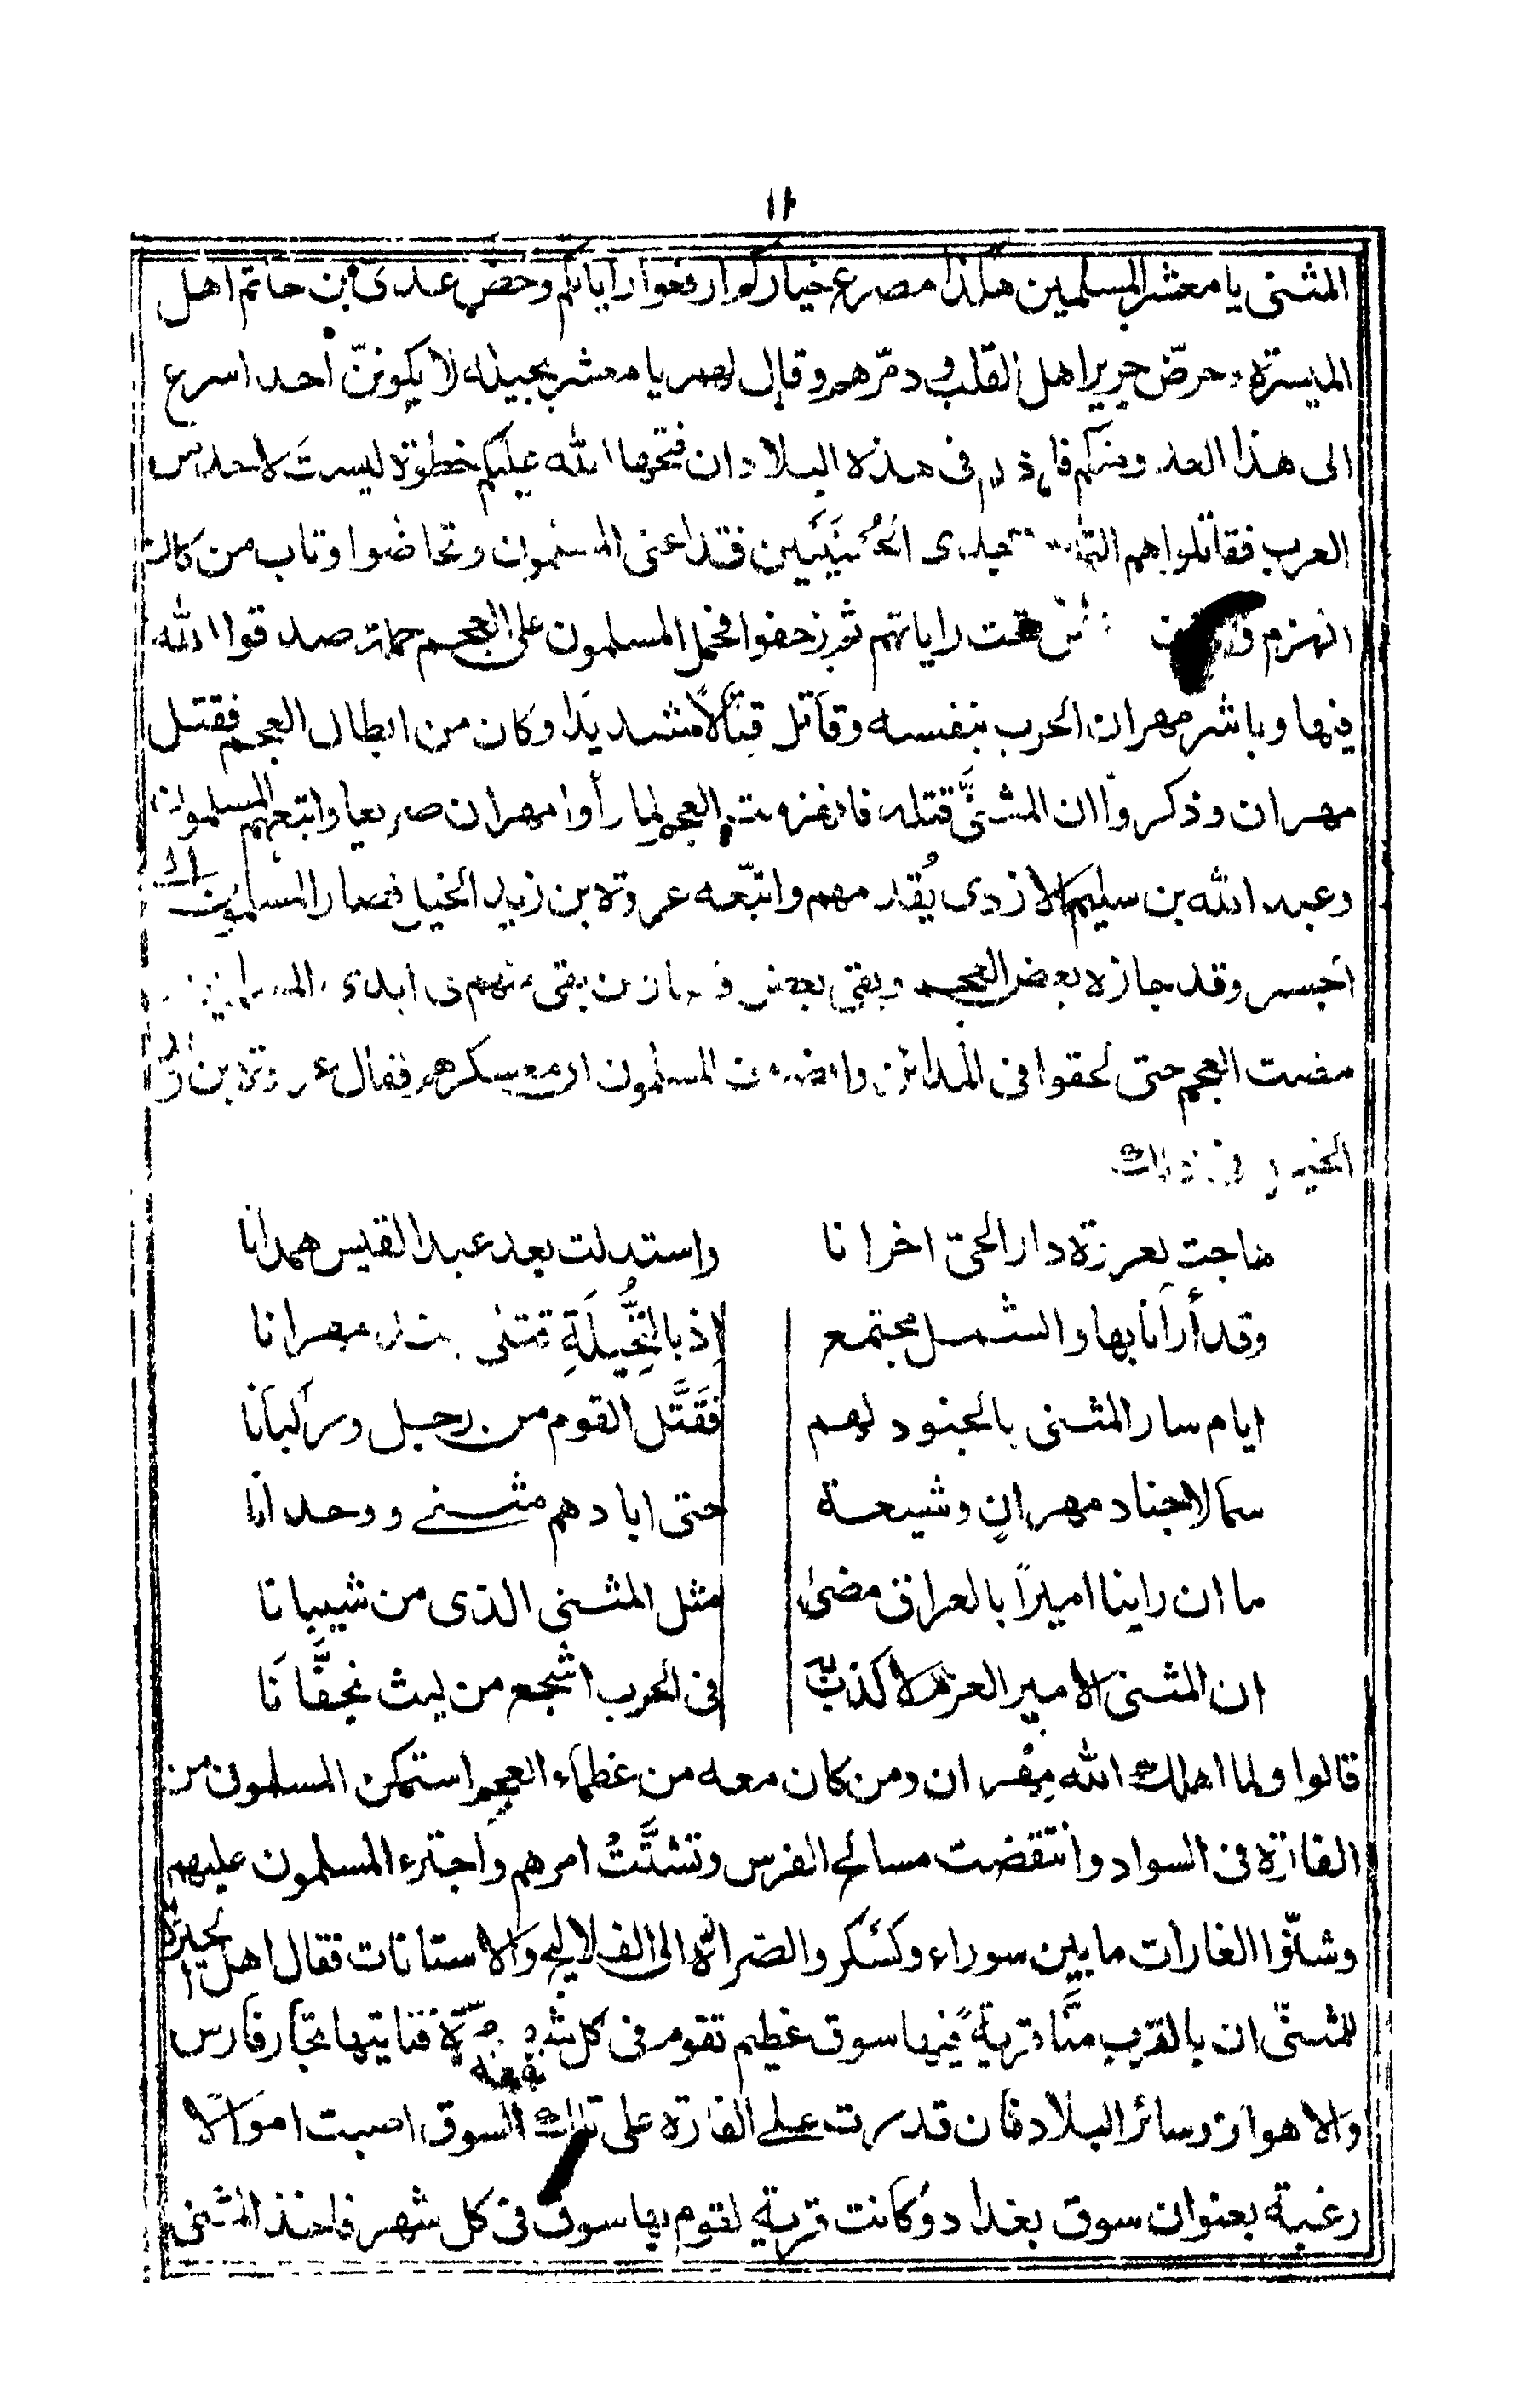 ١١
المثنى يا معشر المسلمين هكذا مصرع خياركم ارفعوا راياتكم وحض عدى بن حاتم اهل
الميسرة وحرّض جرير اهل القلب و دمّرهم وقال لهم يا معشر بجيله لا يكوننّ أحد اسرع
الى هذا العدو منكم فان فى هذه البلاد ان فتحها الله عليكم خطوة ليست لاحد من
العرب فقاتلوهم احدى الحُسنَيَين فتداعى المسلمون وتحاضّوا وتاب من كان
انهزم تحت راياتهم ثم زحفوا فحمل المسلمون على العجم حملة صدقوا الله
فيها وباشر مهران الحرب بنفسه وقاتل قتالًا شديدا وكان من ابطال العجم فقتل
مهران وذكروا ان المثنىَّ قتله فانهزمت العجم لما رأوا مهران صريعا واتبعهم المسلمون
وعبد الله بن سليم الازدى يُقدمهم واتبّعه عروة بن زيد الخيل فصار المسلمون الى
الجسر وقد جازه بعض العجم وبقى بعض فصار من بقى منهم فى ايدى المسلمين
مضت العجم حتى لحقوا فى المدائن وانصرف المسلمون الى معسكرهم فقال عروة بن زيد
الخيل فى ذلك
هاجت بعرزة دار الحىّ اخرانا واستبدلت بعد عبد القيس همدانا
وقد أرانا بها والشمل مجتمع إذ بالنُّخَيلَةِ مهرانا
ايام سار المثنى بالجنود لهم فَقَتَّل القوم من رجل وركبانا
سما لاجناد مهران وشيعة حتى ابادهم مثنى ووحدانا
ما ان راينا اميرًا بالعراق مضىٰ مثل المثنى الذى من شيبانا
ان المثنى الامير العزم لا كذبٌ فى الحرب اشجع من ليث نجفَّانَا
قالوا ولما اهلك الله مهران ومن كان معه من عظماء العجم استمكن المسلمون من
الغارة فى السواد وانتقضت مسالح الفرس وتشتَّتُ امرهم واجترء المسلمون عليهم
وشنّوا الغارات ما بين سوراء وكسكر والصراة الى الفلاليج والاستانات فقال اهل الحيرة
للمثنىّ ان بالقرب منَّا قريةً فيها سوق عظيم تقوم فى كل مرّة فتاتيها تجّار فارس
والاهواز وسائر البلاد فان قدرت على الغارة على تلك السوق اصبت اموالا
رغبة بعنوان سوق بغداد وكانت قرية لقوم بها سوق فى كل شهر فاخذ المثنى